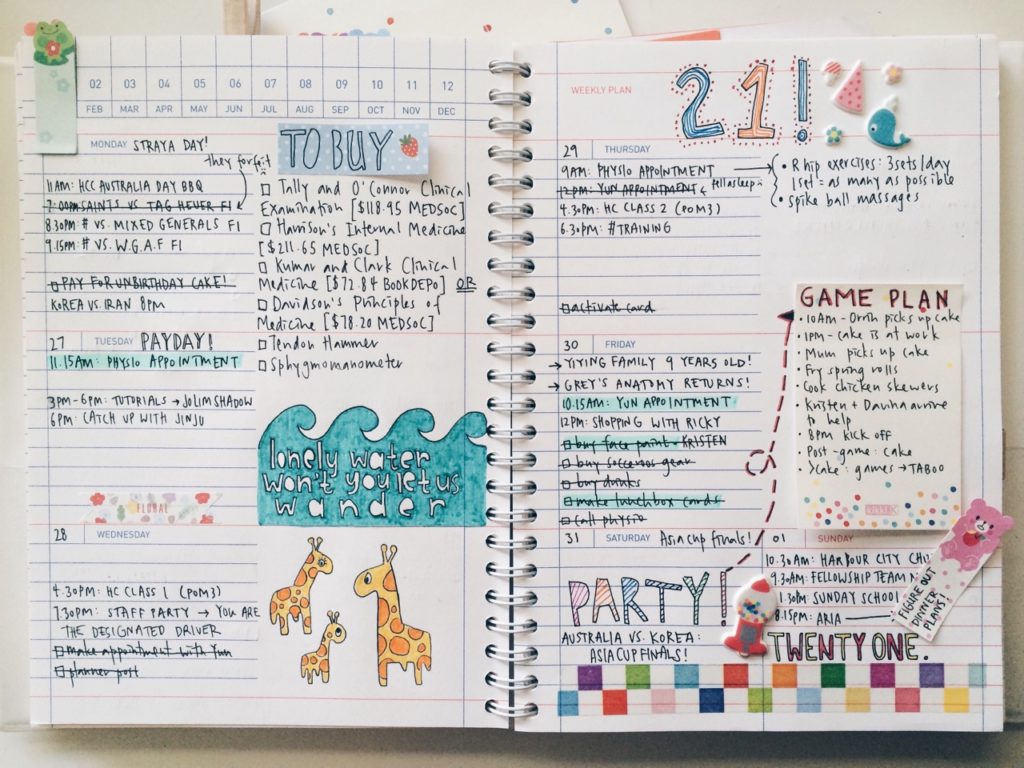 02 03 04 05 06 07 08 09 10 11 12
FEB MAR APR MAY JUN JUL AUG SEP OCT NOV DEC
MONDAY STRAYA DAY!
they forfeit
11AM: HCC AUSTRALIA DAY BBQ
7:00PM SAINTS VS TAG HEUER F1
8.30PM: # VS. MIXED GENERALS F1
9.15PM: # VS. W.G.A.F F1
PAY FOR UNBIRTHDAY CAKE!
KOREA VS. IRAN 8PM
TO BUY
Tally and O'Connor Clinical
Examination [$118.95 MEDSOC]
Harrison's Internal Medicine
[$211.65 MEDSOC]
Kumar and Clark Clinical
Medicine [$72.84 BOOKDEPO] OR
Davidson's Principles of
Medicine [$78.20 MEDSOC]
Tendon Hammer
Sphygmomanometer
27 TUESDAY PAYDAY!
11.15AM: PHYSIO APPOINTMENT
3PM-6PM: TUTORIALS → JOLIMSHADOW
6PM: CATCH UP WITH JINJU
FLORAL
lonely water
won't you let us
wander
28 WEDNESDAY
4.30PM: HC CLASS 1 (POM3)
7.30PM: STAFF PARTY → YOU ARE
THE DESIGNATED DRIVER
make appointment with Yun
planner post
WEEKLY PLAN
21!
29 THURSDAY
9AM: PHYSIO APPOINTMENT
12PM: YUN APPOINTMENT fell asleep
4.30PM: HC CLASS 2 (POM3)
6.30PM: #TRAINING
activate card
• R hip exercises: 3sets/day
1set = as many as possible
• spike ball massages
30 FRIDAY
→ YIYING FAMILY 9 YEARS OLD!
→ GREY'S ANATOMY RETURNS!
10.15AM: YUN APPOINTMENT
12PM: SHOPPING WITH RICKY
buy face paint - KRISTEN
buy socceroos gear
buy drinks
make lunchbox cards
call physio
GAME PLAN
• 10AM - Orrth picks up cake
• 1PM - cake is at work
• Mum picks up cake
• Fry spring rolls
• Cook chicken skewers
• Kristen + Davina arrive
to help
• 8PM kick off
• Post-game: cake
• >cake: games → TABOO
31 SATURDAY Asia cup finals!
PARTY!
AUSTRALIA VS. KOREA:
ASIA CUP FINALS!
01 SUNDAY
10.30AM: HARBOUR CITY
9.30AM: FELLOWSHIP TEAM
1.30PM: SUNDAY SCHOOL
8.15PM: ARIA
FIGURE OUT
DINNER
PLANS!
TWENTY ONE.